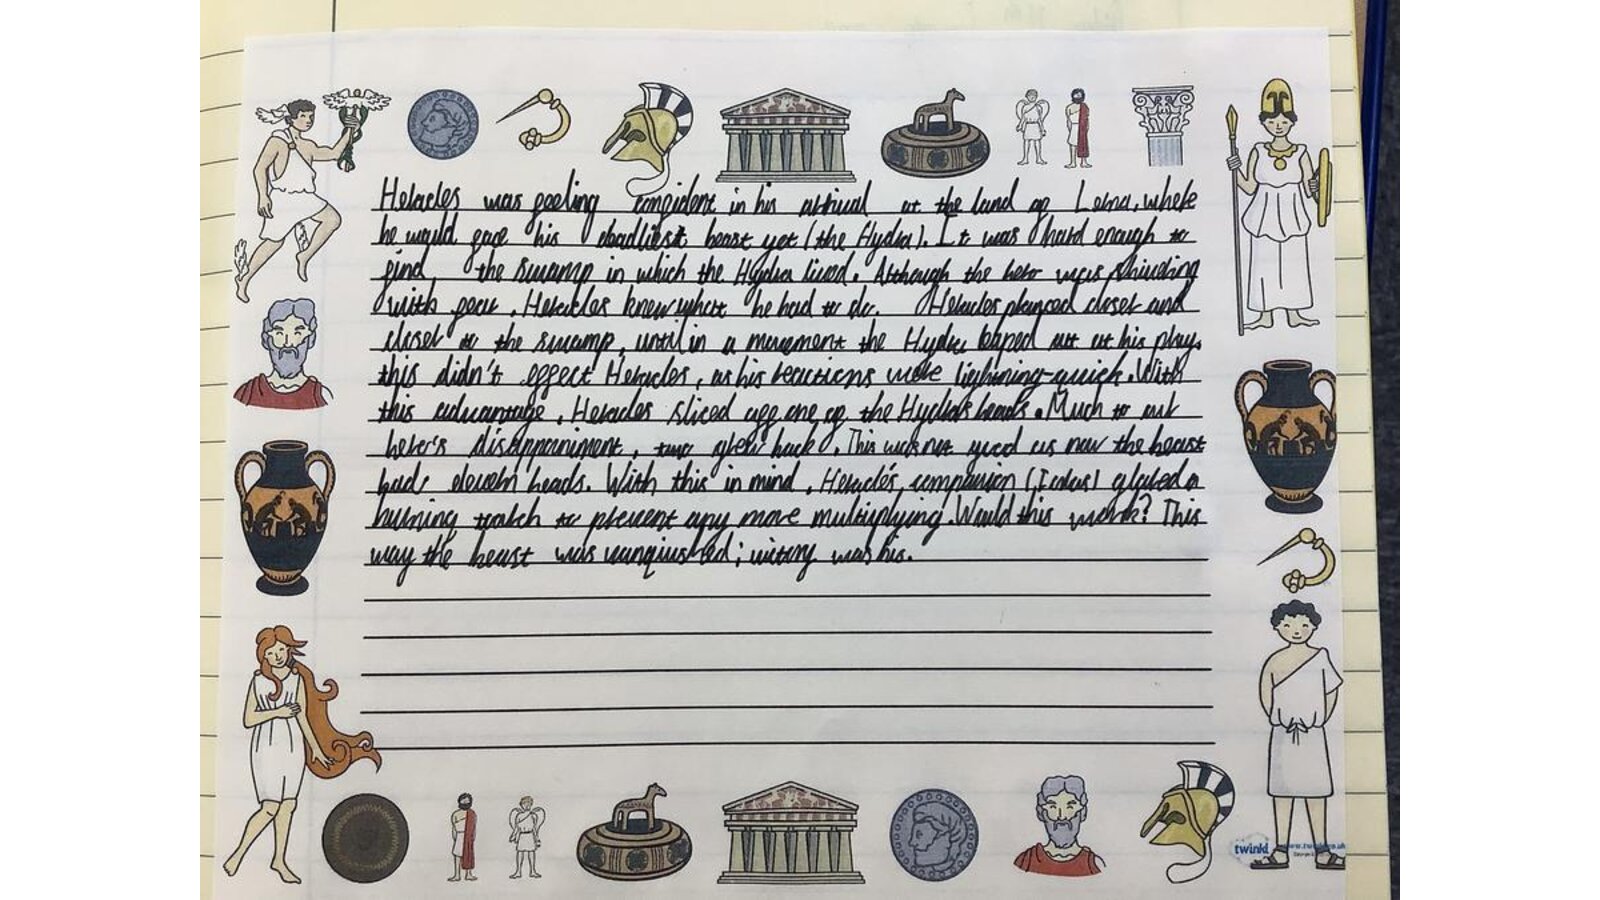 Heracles was feeling confident in his arrival at the land of Lerna, where
he would face his deadliest beast yet (the Hydra). It was hard enough to
find the swamp in which the Hydra lived. Although the hero was shivering
with fear, Heracles knew what he had to do. Heracles closer and
closer to the swamp, until in a movement the Hydra leaped out at his play,
this didn't effect Heracles, as his reactions were lightning-quick. With
this advantage, Heracles sliced off one of the Hydra's heads. Much to out
hero's disapponiment, two grew back. This was not good as now the beast
had eleven heads. With this in mind, Heracles' companion (Iolas) a
burning tourch to prevent any more multiplying. Would this work? This
way the beast was vanquished; victory was his.
twinkl